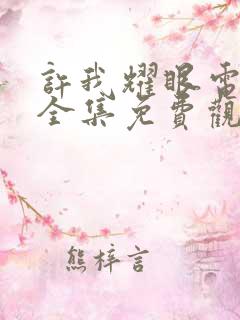 許我耀眼電
全集免費觀
熊梓言